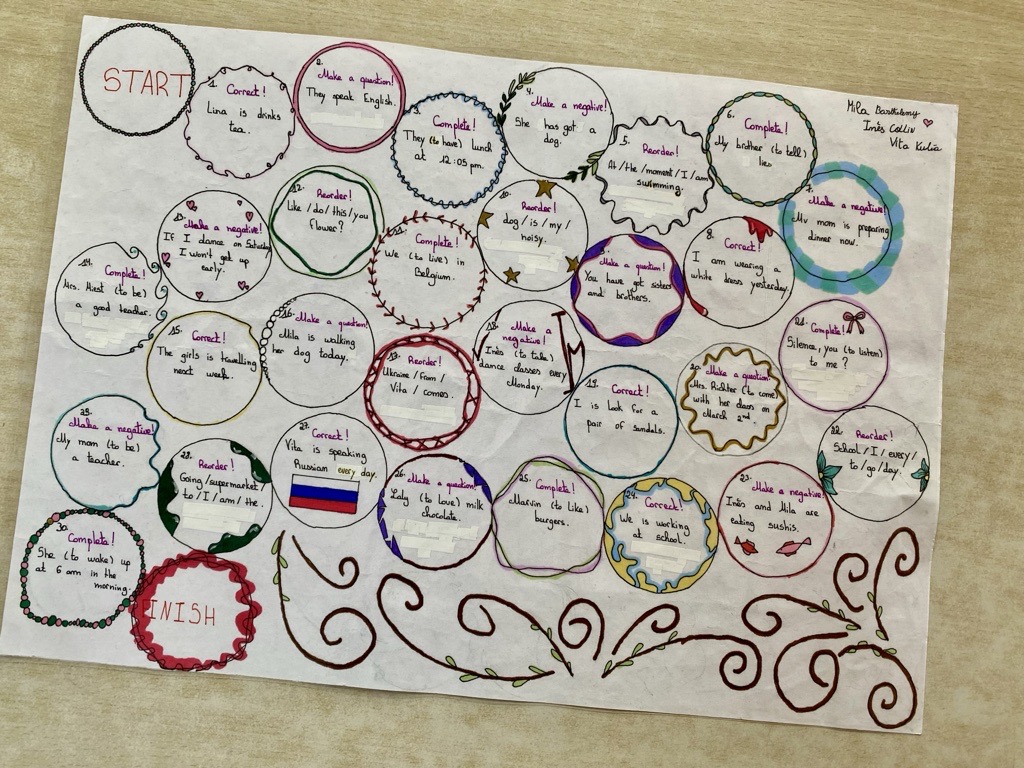 START
1. Correct!
Lina is drinks
tea.
2.
Make a question!
They speak English.
3. Complete!
They (to have) lunch
at 12:05 pm.
4.
Make a negative!
She has got a
dog.
5. Reorder!
At/the/moment/I/am
swimming.
6.
Complete!
My brother (to tell)
lies
Mila Barthélemy
Inès Collin
Vita Kulia
7.
Make a negative!
My mom is preparing
dinner now.
8. Correct!
I am wearing a
white dress yesterday.
Make a question!
You have got sisters
and brothers.
10. Reorder!
dog/is/my/
noisy.
11.
Complete!
We (to live) in
Belgium.
12.
Reorder!
Like/do/this/you
flower?
13. Make a negative!
If I dance on Saturday
I won't get up
early.
14. Complete!
Mrs. Miest (to be)
a good teacher.
15. Correct!
The girls is travelling
next week.
16. Make a question!
Mila is walking
her dog today.
17. Reorder!
Ukraine/from/
Vita/comes.
18. Make a
negative!
Inès (to take)
dance classes every
Monday.
19. Correct!
I is look for a
pair of sandals.
20. Make a question
Mrs. Richter (to come)
with her class on
March 2nd.
21. Complete!
Silence, you (to listen)
to me?
22. Reorder!
School/I/every/
to/go/day.
23.
Make a negative!
Inès and Mila are
eating sushis.
24. Correct!
We is working
at school.
25. Complete!
Marvin (to like)
burgers.
26. Make a question!
Laly (to love) milk
chocolate.
27. Correct!
Vita is speaking
Russian every day.
28.
Reorder!
Going/supermarket/
to/I/am/the.
29.
Make a negative!
My mom (to be)
a teacher.
30.
Complete!
She (to wake) up
at 6 am in the
morning.
FINISH